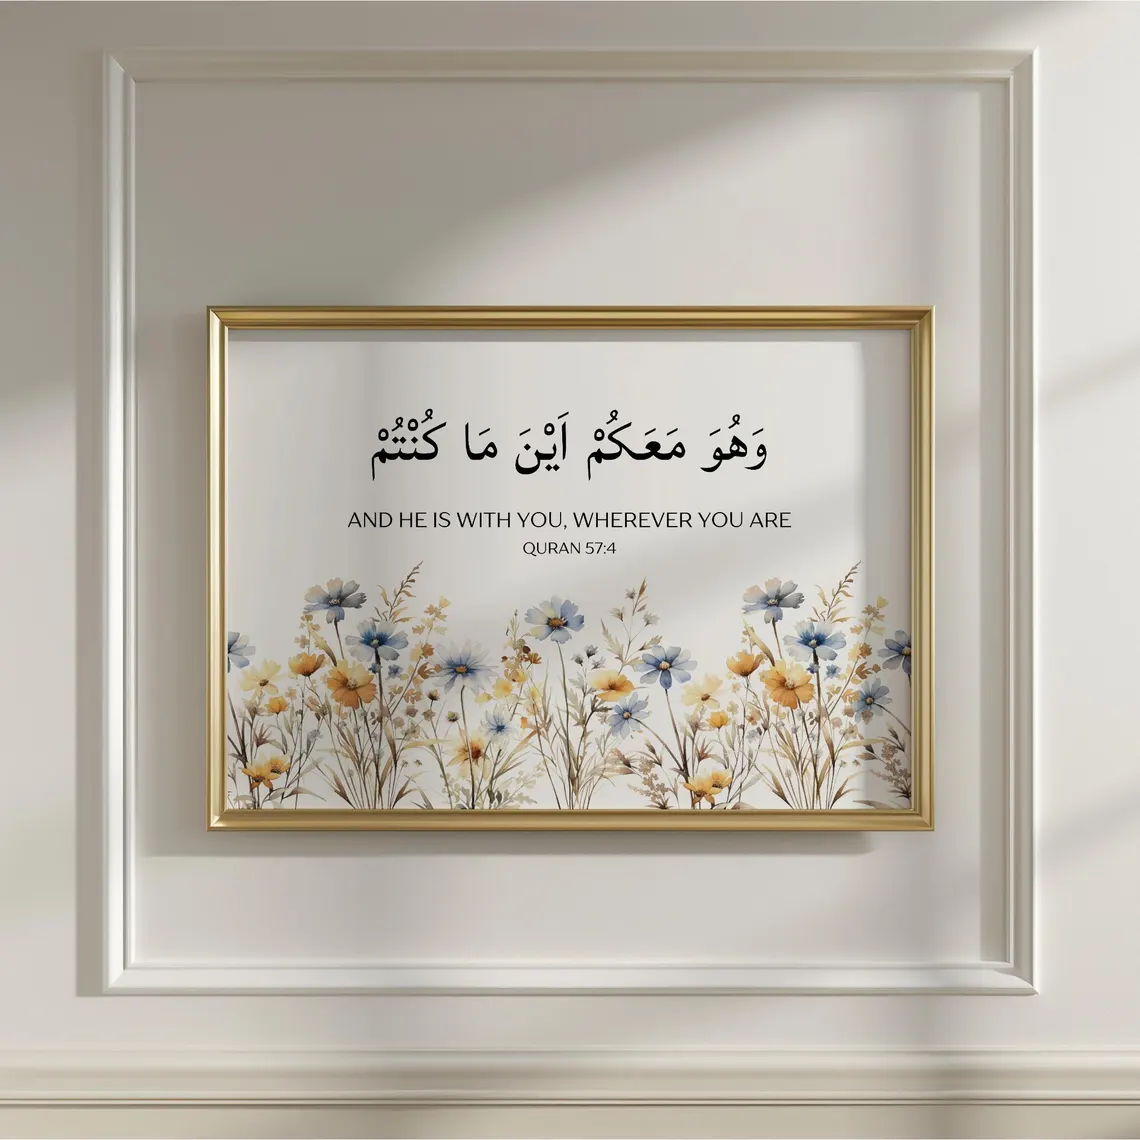 وَهُوَ مَعَكُمْ اَيْنَ مَا كُنْتُمْ
AND HE IS WITH YOU, WHEREVER YOU ARE
QURAN 57:4